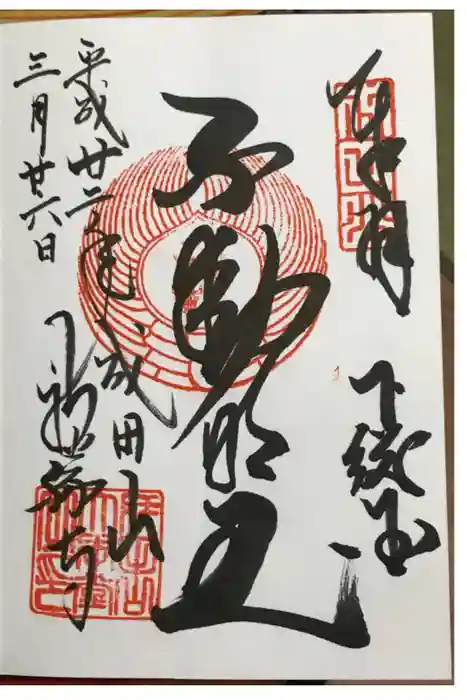 奉拝
下総国
不動明王
平成廿二年
三月廿六日
成田山
新勝寺